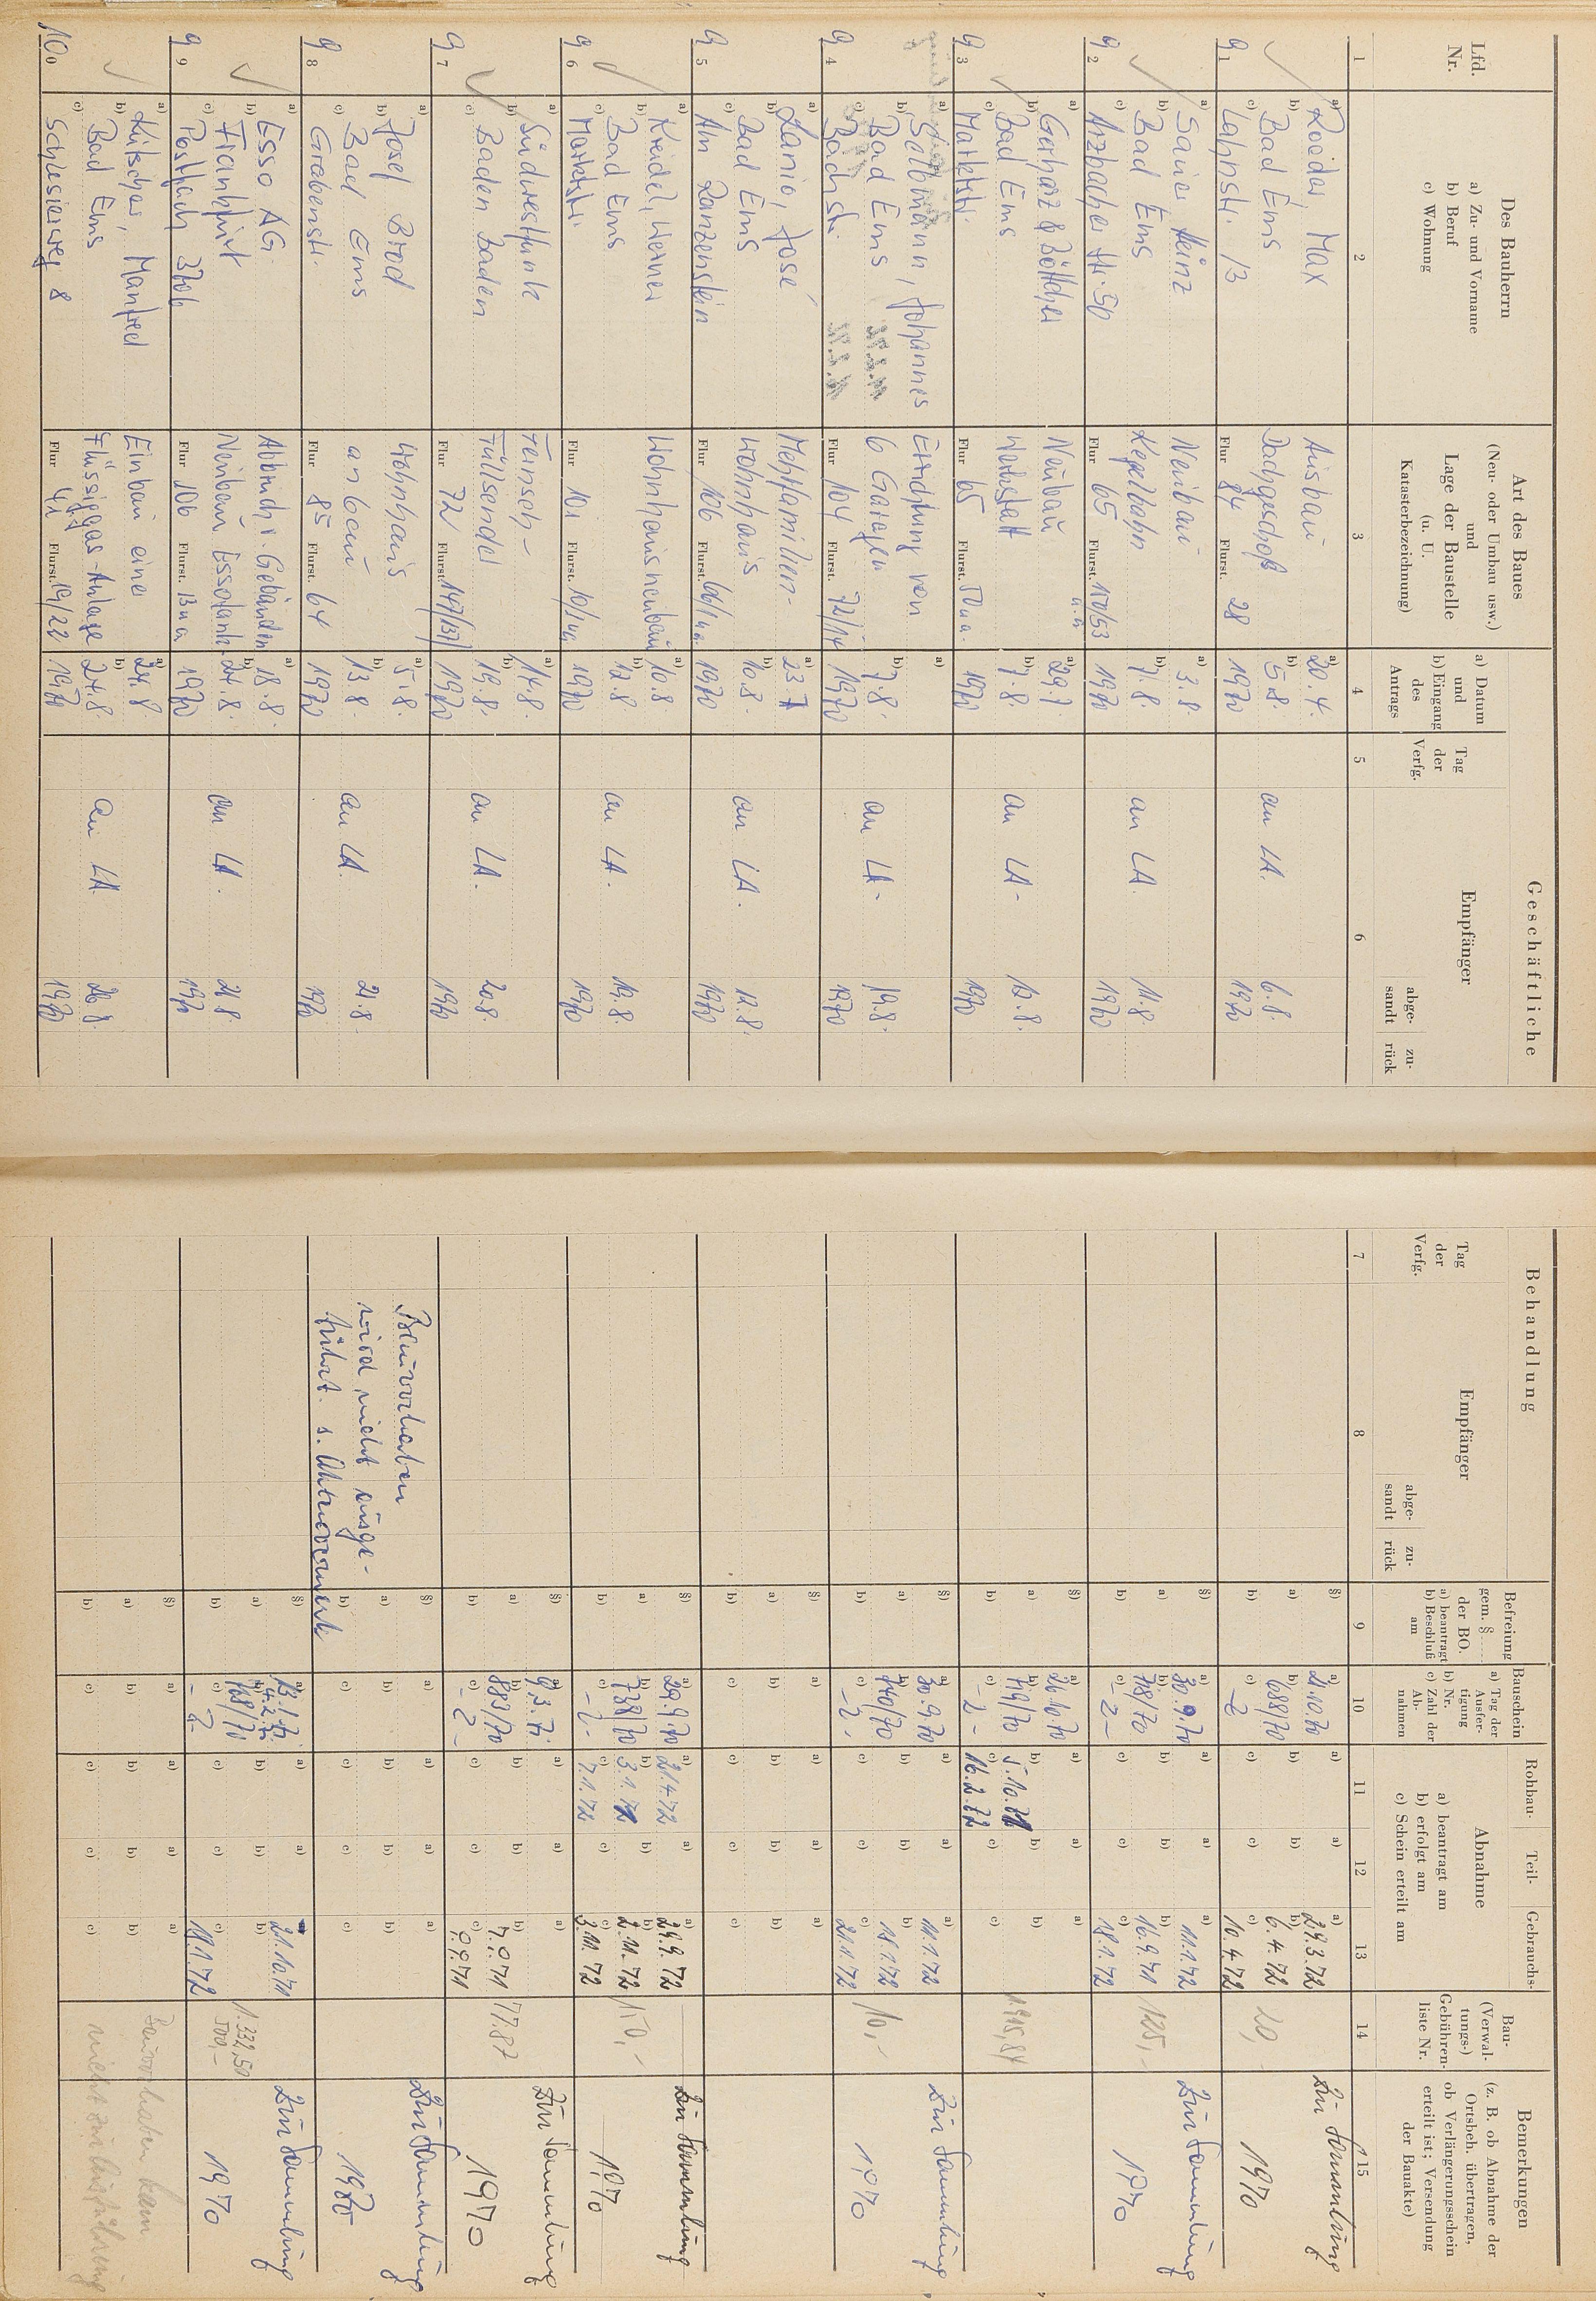 Geschäftliche
Behandlung
Lfd.
Nr.
Des Bauherrn
a) Zu- und Vorname
b) Beruf
c) Wohnung
Art des Baues
(Neu- oder Umbau usw.)
und
Lage der Baustelle
(u. U.
Katasterbezeichnung)
a) Datum
und
b) Eingang
des
Antrags
Tag
der
Verfg.
Empfänger
abge-
sandt
zu-
rück
Tag
der
Verfg.
Empfänger
abge-
sandt
zu-
rück
Befreiung
gem. §
der BO.
a) beantragt
b) Beschluß
am
Bauschein
a) Tag der
Ausfer-
tigung
b) Nr.
c) Zahl der
Ab-
nahmen
Rohbau-
Teil-
Gebrauchs-
Abnahme
a) beantragt am
b) erfolgt am
c) Schein erteilt am
Bau-
(Verwal-
tungs-)
Gebühren-
liste Nr.
Bemerkungen
(z. B. ob Abnahme der
Ortsbeh. übertragen,
ob Verlängerungsschein
erteilt ist; Versendung
der Bauakte)
1 2 3 4 5 6 7 8 9 10 11 12 13 14 15
91
a) Roeder, Max
b) Bad Ems
c) Lahnstr. 13
Ausbau
Dachgeschoß
Flur 84 Flurst. 28
a) 20.4.
b) 5.8.
1970
an LA.
6.8.
1970
a) 21.10.70
b) 688/70
c) -2
a) 29.3.72
b) 6.4.72
c) 10.4.72
20,
Zur Sammlung
1970
92
a) Sauer, Heinz
b) Bad Ems
c) Arzbacher Str. 50
Neubau
Kegelbahn
Flur 65 Flurst. 150/53
u.a.
a) 3.8.
b) 7.8.
1970
an LA.
11.8.
1970
a) 30.9.70
b) 718/70
c) -2-
a) 11.1.72
b) 16.9.71
c) 18.1.72
125,-
Zur Sammlung
1970
93
a) Gerharz & Böttcher
b) Bad Ems
c) Marktstr.
Neubau
Werkstatt
Flur 65 Flurst. 50 u.a.
a) 29.7
b) 7.8.
1970
an LA-
12.8.
1970
a) 26.10.70
b) 719/70
c) -2-
b) 5.10.71
c) 16.2.72
1915,84
94
a) Selbmann, Johannes
b) Bad Ems
c) Bachstr.
Errichtung von
6 Garagen
Flur 104 Flurst. 72/14
b) 7.8.
1970
an LA-
19.8.
1970
a) 30.9.70
b) 740/70
c) -2-
a) 11.1.72
b) 18.1.72
c) 21.1.72
10,-
Zur Sammlung
1970
95
a) Lanio, José
b) Bad Ems
c) Am Ranzenstein
Mehrfamilien-
wohnhaus
Flur 106 Flurst. 66/1 u.a.
a) 23.7
b) 10.8.
1970
an LA.
12.8.
1970
96
a) Kreidel, Werner
b) Bad Ems
c) Marktstr.
Wohnhausneubau
Flur 101 Flurst. 10/1 ua.
a) 10.8
b) 12.8
1970
an LA.
19.8.
1970
a) 29.9.70
b) 738/70
c) -2-
a) 21.4.72
b) 3.1.72
c) 7.1.72
a) 29.9.72
b) 2.11.72
c) 3.11.72
150,-
Zur Sammlung
1970
97
a) Südwestfunk
b)
c) Baden Baden
Fernseh-
Füllsender
Flur 72 Flurst. 147/137
a) 14.8.
b) 19.8.
1970
an LA.
20.8.
1970
a) 9.3.71
b) 883/70
c) -2-
b) 7.9.71
c) 9.9.71
77.87
Zur Sammlung
1970
98
a) Josef Brod
b) Bad Ems
c) Grabenstr.
Wohnhaus
anbau
Flur 85 Flurst. 64
a) 5.8.
b) 13.8.
1970
an LA.
21.8.
1970
Bauvorhaben
wird nicht ausge-
führt s. Aktenvermerk
Zur Sammlung
1970
99
a) Esso AG.
b) Frankfurt
c) Postfach 3706
Abbruch v. Gebäuden
Neubau Essotank.
Flur 106 Flurst. 13 ua
a) 18.8.
b) 24.8.
1970
an LA.
21.8.
1970
a) 13.1.71
b) 768/70
c) -2-
a) 21.10.71
c) 18.1.72
1.332,50
500,-
Zur Sammlung
1970
100
a) Kutscher, Manfred
b) Bad Ems
c) Schlesierweg 8
Einbau einer
Flüssiggas-Anlage
Flur 41 Flurst. 19/22
a) 24.8
b) 24.8
1970
an LA
26.8.
1970
Bauvorhaben kam
nicht zur Ausführung